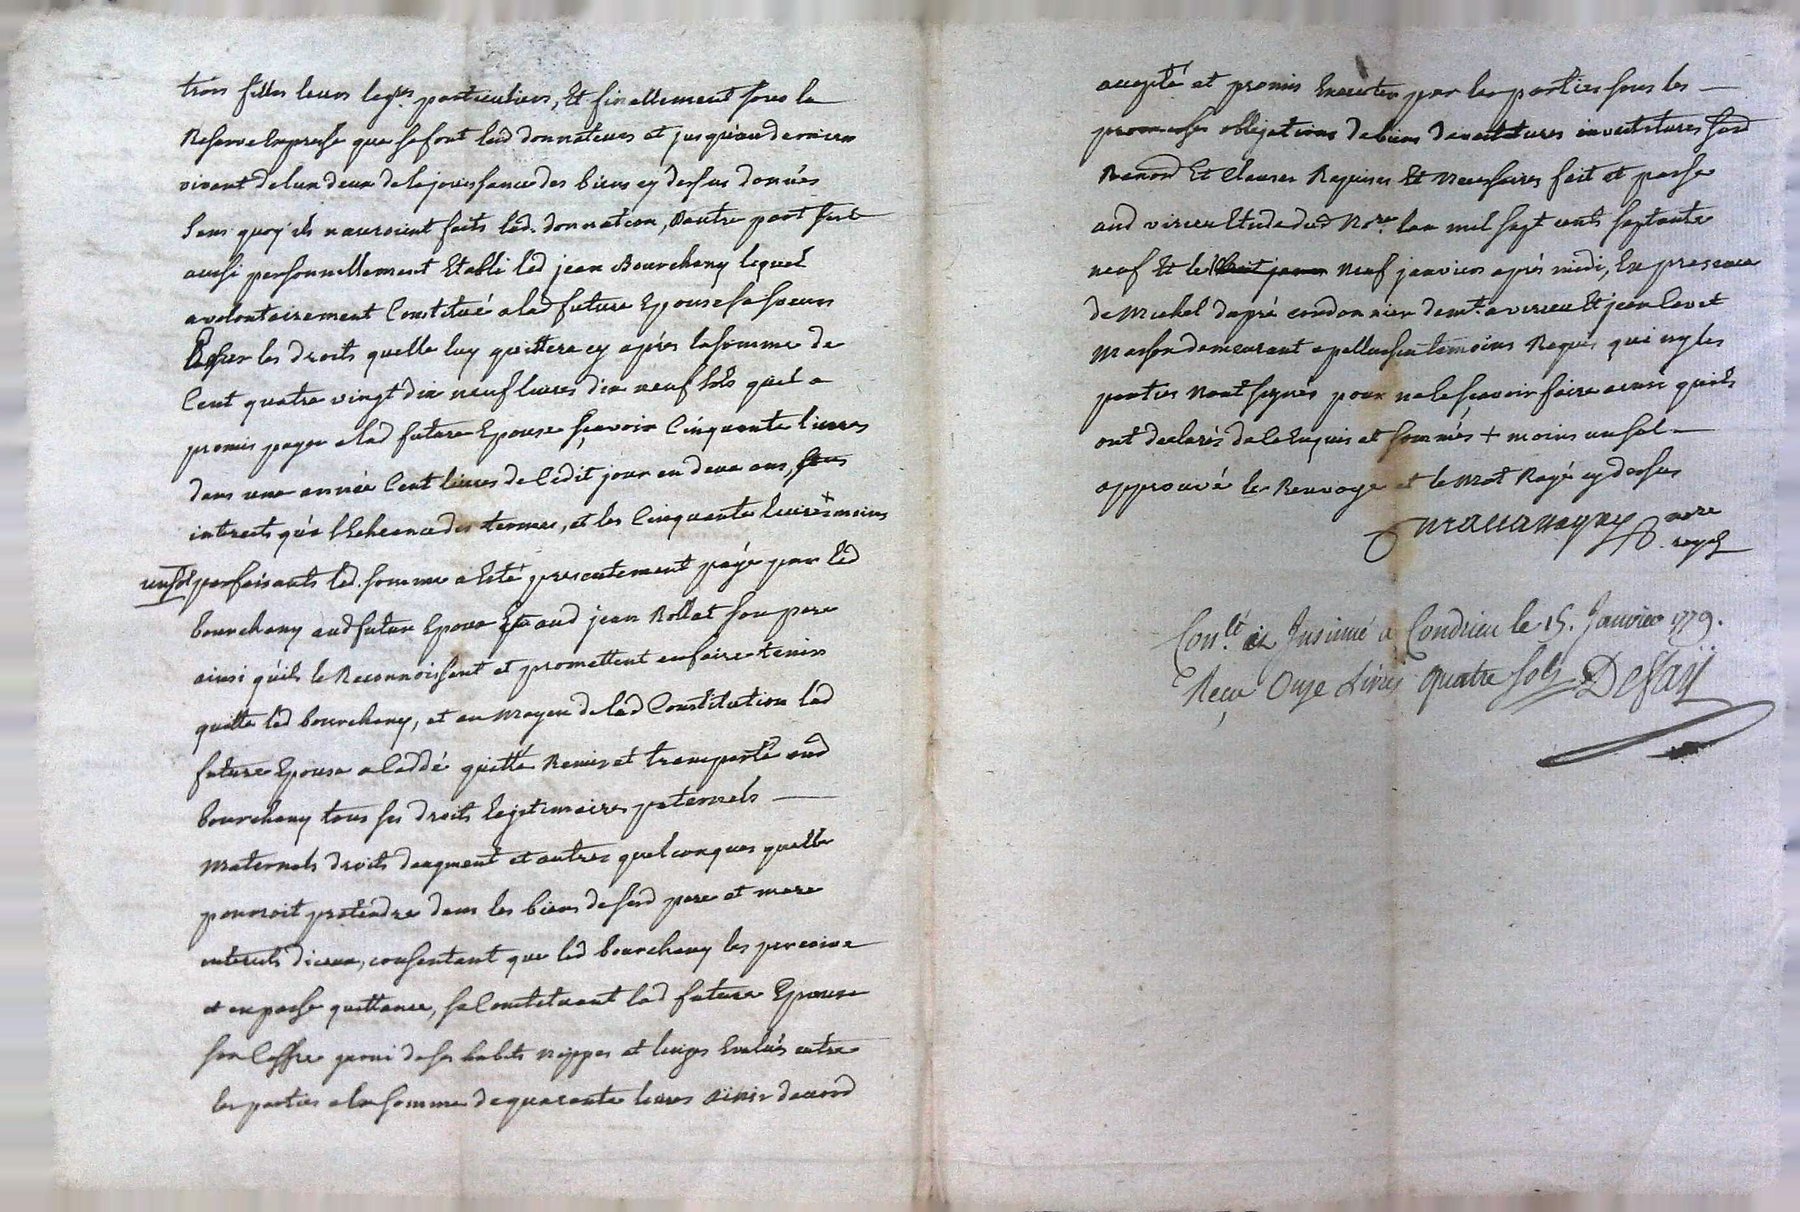 trois filles leurs legts. particuliers, Et finallement sous la
Reserve Expresse que se font lesd donnateurs et jusqu'au dernier
vivant de lun deux de la jouissance des biens cy dessus donnés
sans quoy ils nauroient faits lad. donnation, Dautre part sest
aussi personnellement Etabli led jean Bourchany lequel
a volontairement Constitué a lad future Epouse sa soeur
les droits quelle luy quittera cy après la somme de
Cent quatre vingt dix neuf livres dix neuf sols quil a
promis payer a lad future Epouse sçavoir Cinquante livres
dans une année Cent livres de cedit jour en deux ans, sans
interets qu'a l'Echeance des termes, et les Cinquante livres + moins
un sol parfaisants lad. somme a Esté presentement payé par led
bourchany aud futur Epoux Et aud jean Rollat son pere
ainsi qu'ils le Reconnoissent et promettent en faire tenir
quitte led bourchany, et au Moyen de lad Constitution lad
future Epouse a ceddé quitté Remis et transporté aud
bourchany tous ses droits legitimaires paternels
Maternels droits daugment et autres quelconques quelle
pourroit pretendre dans les biens de sesd pere et mere
interets diceux, consentant que led bourchany les percoive
et en passe quittance, se Constituant lad future Epouse
son Coffre garni de ses habits nippes et linges Evalués entre
les parties a la somme de quarante livres ainsi dacord
accepté et promis Executer par les parties sous les
promesses obligations de biens devestitures investitures
Et Clauses Requises Et Necessaires fait et passé
aud virieu Etude dud Nore. lan mil sept cents septante
neuf Et le neuf janvier après midi, En presence
de Michel dupré cordonnier demt. a virieu Et jean
Masson demeurant a pellussin temoins Requis qui ny les
parties Nont signés pour ne le sçavoir faire ainsi quils
ont declarés de ce Enquis et sommés + moins un sol
approuvé le Renvoye et le Mot Rayé cy dessus
nore
royal
Conlé et Insinué a Condrieu le 15. Janvier 1779.
Reçu Onze Livres quatre sols Defaÿ